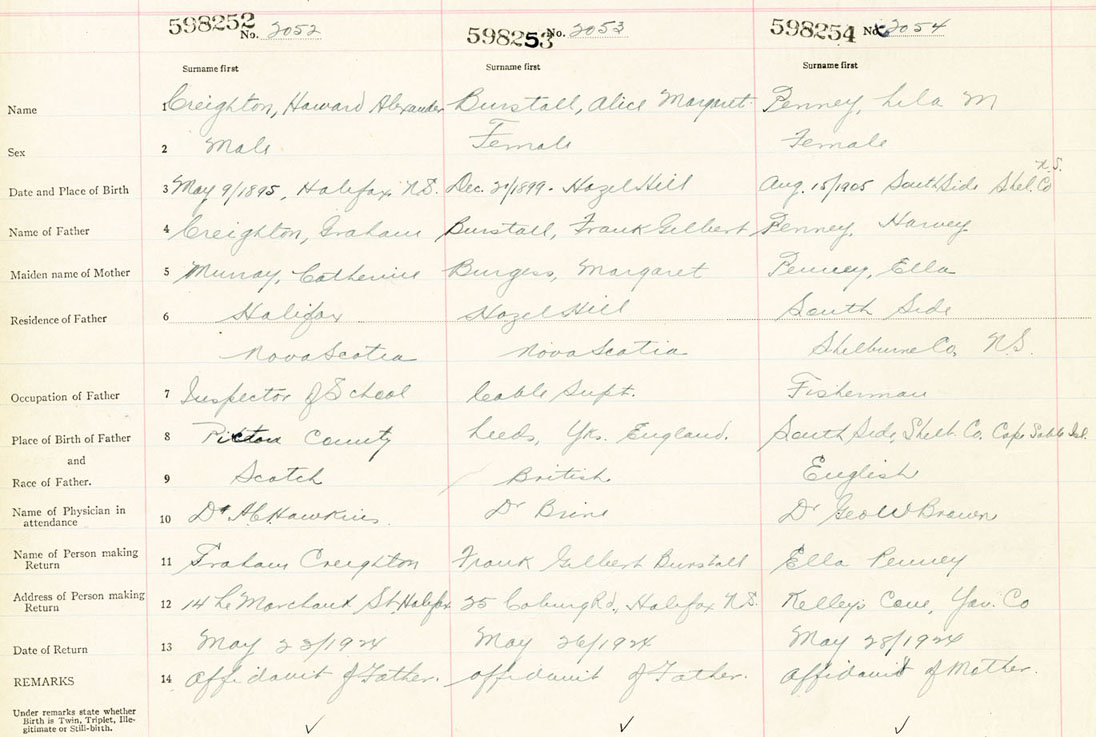 598252 No. 2052 598253 No. 2053 598254 No. 2054
Surname first Surname first Surname first
Name 1 Creighton, Howard Alexander Burstall, Alice Margret Penney, Lila M
Sex 2 Male Female Female
N.S.
Date and Place of Birth 3 May 9/1895, Halifax, N.S. Dec. 21/1899. Hazel Hill Aug. 15/1905 South Side Shel. Co
Name of Father 4 Creighton, Graham Burstall, Frank Gilbert Penney, Harvey
Maiden name of Mother 5 Murray, Catherine Burgess, Margaret Penney, Ella
Residence of Father 6 Halifax Hazel Hill South Side
Nova Scotia Nova Scotia Shelburne Co, N.S.
Occupation of Father 7 Inspector of School Cable Supt. Fisherman
Place of Birth of Father 8 Pictou County Leeds, Yks. England. South Side, Shelb. Co. Cape Sable Isl.
and
Race of Father. 9 Scotch British English
Name of Physician in
attendance 10 Dr Hawkins. Dr Brine Dr Geo W Brown
Name of Person making
Return 11 Graham Creighton Frank Gilbert Burstall Ella Penney
Address of Person making
Return 12 14 Le Marchant St, Halifax 25 Coburg Rd, Halifax N.S. Kelleys Cove, Yar. Co
Date of Return 13 May 22/1924 May 26/1924 May 28/1924
REMARKS 14 Affidavit of Father. Affidavit of Father. Affidavit of Mother.
Under remarks state whether
Birth is Twin, Triplet, Ille-
gitimate or Still-birth. ✓ ✓ ✓